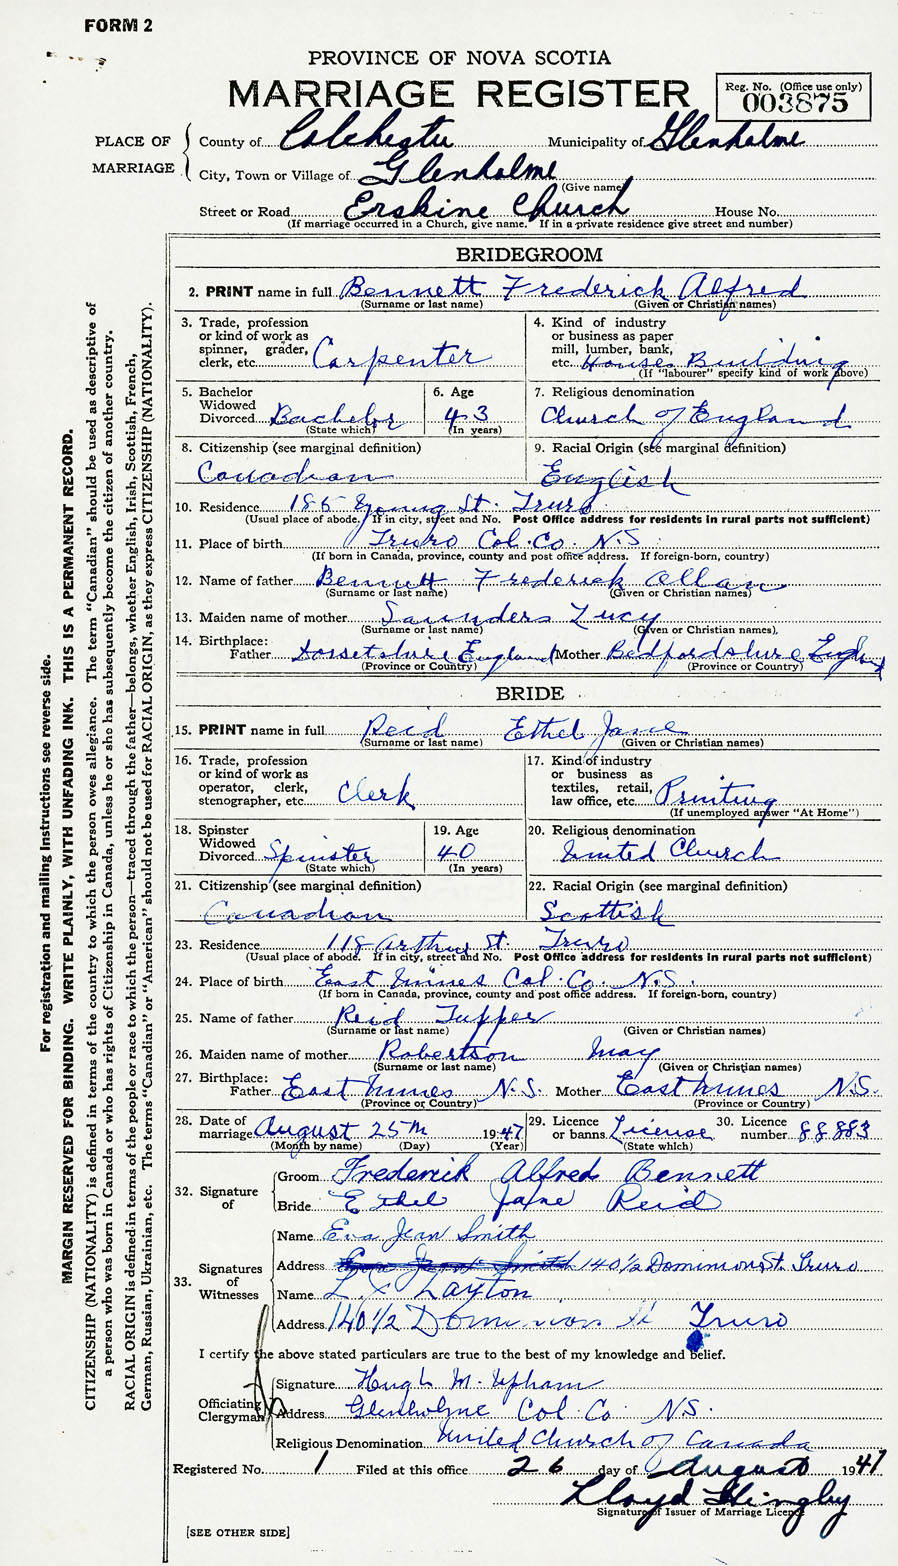 FORM 2
PROVINCE OF NOVA SCOTIA
MARRIAGE REGISTER
Reg. No. (Office use only)
003875
PLACE OF MARRIAGE
County of Colchester Municipality of Glenholme
City, Town or Village of Glenholme
(Give name)
Street or Road Erskine Church House No.
(If marriage occurred in a Church, give name. If in a private residence give street and number)
BRIDEGROOM
2. PRINT name in full Bennett Frederick Alfred
(Surname or last name) (Given or Christian names)
3. Trade, profession or kind of work as spinner, grader, clerk, etc. Carpenter
4. Kind of industry or business as paper mill, lumber, bank, etc. House Building
(If "labourer" specify kind of work above)
5. Bachelor Widowed Divorced Bachelor
(State which)
6. Age 43
(In years)
7. Religious denomination
Church of England
8. Citizenship (see marginal definition)
Canadian
9. Racial Origin (see marginal definition)
English
10. Residence 185 Young St. Truro
(Usual place of abode. If in city, street and No. Post Office address for residents in rural parts not sufficient)
11. Place of birth Truro Col. Co. N.S.
(If born in Canada, province, county and post office address. If foreign-born, country)
12. Name of father Bennett Frederick Allan
(Surname or last name) (Given or Christian names)
13. Maiden name of mother Saunders Lucy
(Surname or last name) (Given or Christian names),
14. Birthplace:
Father Dorsetshire England Mother Bedfordshire England
(Province or Country) (Province or Country)
BRIDE
15. PRINT name in full Reid Ethel Jane
(Surname or last name) (Given or Christian names)
16. Trade, profession or kind of work as operator, clerk, stenographer, etc. Clerk
17. Kind of industry or business as textiles, retail, law office, etc. Printing
(If unemployed answer "At Home")
18. Spinster Widowed Divorced Spinster
(State which)
19. Age 40
(In years)
20. Religious denomination
United Church
21. Citizenship (see marginal definition)
Canadian
22. Racial Origin (see marginal definition)
Scottish
23. Residence 118 Arthur St. Truro
(Usual place of abode. If in city, street and No. Post Office address for residents in rural parts not sufficient)
24. Place of birth East Mines Col. Co. N.S.
(If born in Canada, province, county and post office address. If foreign-born, country)
25. Name of father Reid Tupper
(Surname or last name) (Given or Christian names)
26. Maiden name of mother Robertson May
(Surname or last name) (Given or Christian names)
27. Birthplace:
Father East Mines N.S. Mother East Mines N.S.
(Province or Country) (Province or Country)
28. Date of marriage August 25th 1947
(Month by name) (Day) (Year)
29. Licence or banns License
(State which)
30. Licence number 88883
32. Signature of
Groom Frederick Alfred Bennett
Bride Ethel Jane Reid
33. Signatures of Witnesses
Name Eva Jean Smith
Address 140 1/2 Dominion St. Truro
Name L. Layton
Address 140 1/2 Dominion St Truro
I certify the above stated particulars are true to the best of my knowledge and belief.
Officiating Clergyman
Signature Hugh M. Upham
Address Glenholme Col. Co. N.S.
Religious Denomination United Church of Canada
Registered No. 1 Filed at this office 26 day of August 1947
Lloyd Slingby
Signature of Issuer of Marriage Licence
[SEE OTHER SIDE]
For registration and mailing Instructions see reverse side.
MARGIN RESERVED FOR BINDING. WRITE PLAINLY, WITH UNFADING INK. THIS IS A PERMANENT RECORD.
CITIZENSHIP (NATIONALITY) is defined in terms of the country to which the person owes allegiance. The term "Canadian" should be used as descriptive of
a person who was born in Canada or who has rights of Citizenship in Canada, unless he or she has subsequently become the citizen of another country.
RACIAL ORIGIN is defined in terms of the people or race to which the person—traced through the father—belongs, whether English, Irish, Scottish, French,
German, Russian, Ukrainian, etc. The terms "Canadian" or "American" should not be used for RACIAL ORIGIN, as they express CITIZENSHIP (NATIONALITY).